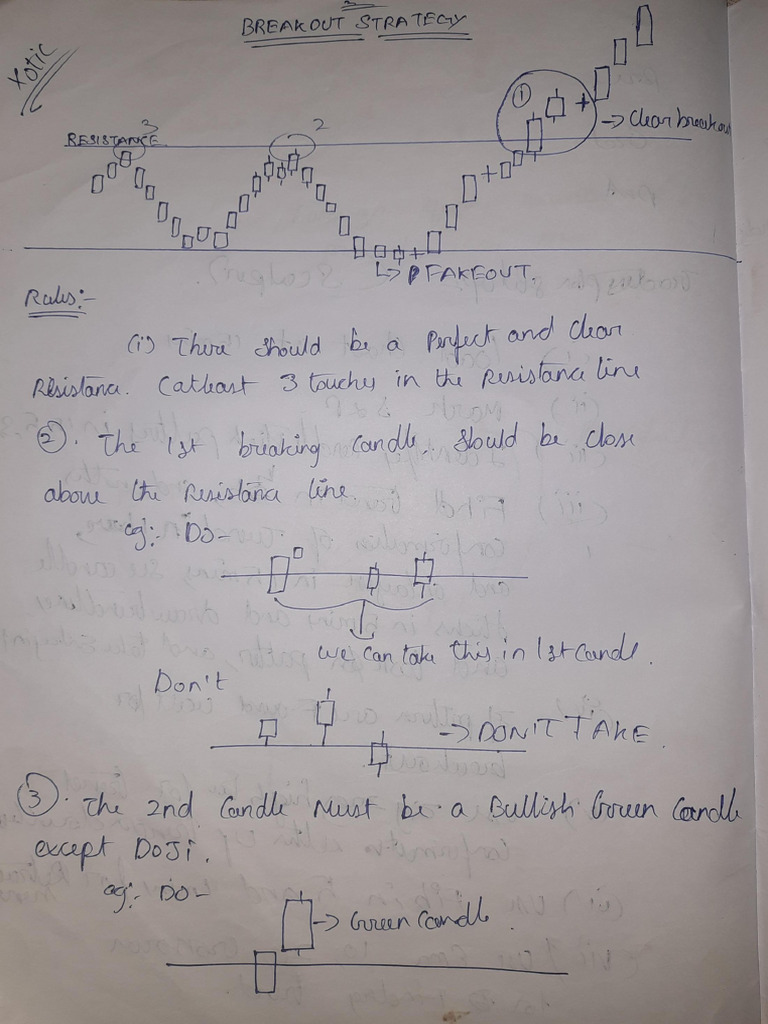 BREAKOUT STRATEGY
Xotic
RESISTANCE
3
2
1
+
→ Clear breakout
+
+
↳ FAKEOUT.
Rules:-
(i) There should be a Perfect and Clear
Resistance. (atleast 3 touches in the Resistance line
②. The 1st breaking Candle should be close
above the Resistance line.
eg:- DO-
we can take this in 1st Candl.
Don't
→ DON'T TAKE.
③. The 2nd Candle Must be a Bullish Green Candle
except DOJi.
eg:- DO-
→ Green Candle.